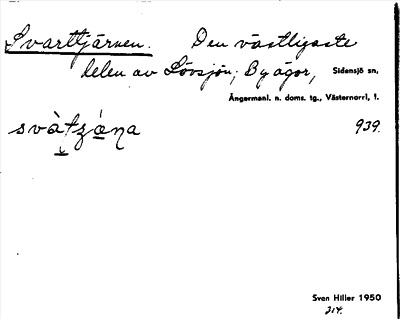 Svarttjärnen. Den västligaste
delen av Lövsjön; Byägor, Sidensjö sn,
Ångermanl. n. doms. tg., Västernorrl, l.
svàtzǻṇa 939.
Sven Hiller 1950
214.